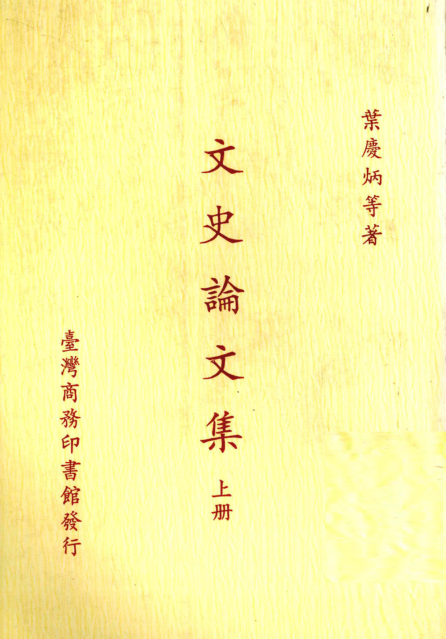 葉慶炳等著
文史論文集 上册
臺灣商務印書館發行